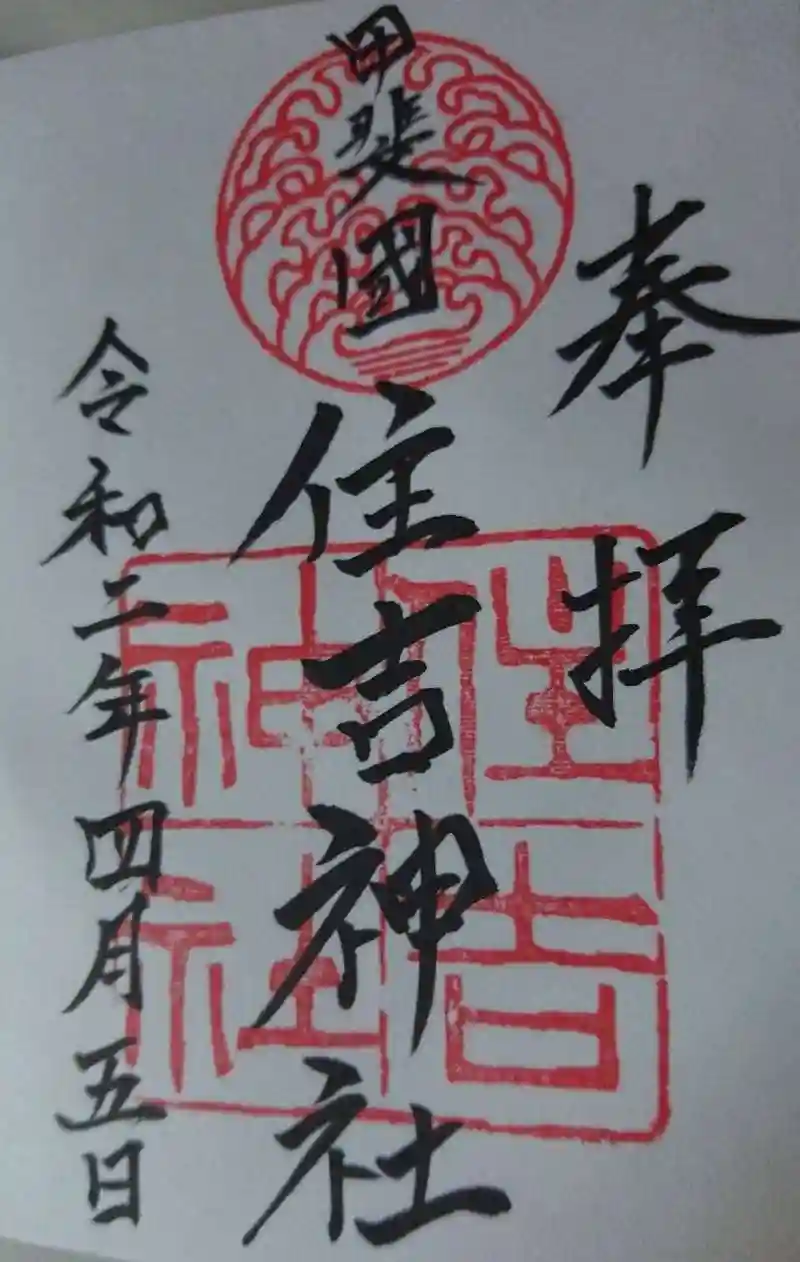 奉拝
甲斐國
住吉神社
住吉
神社
令和二年四月五日